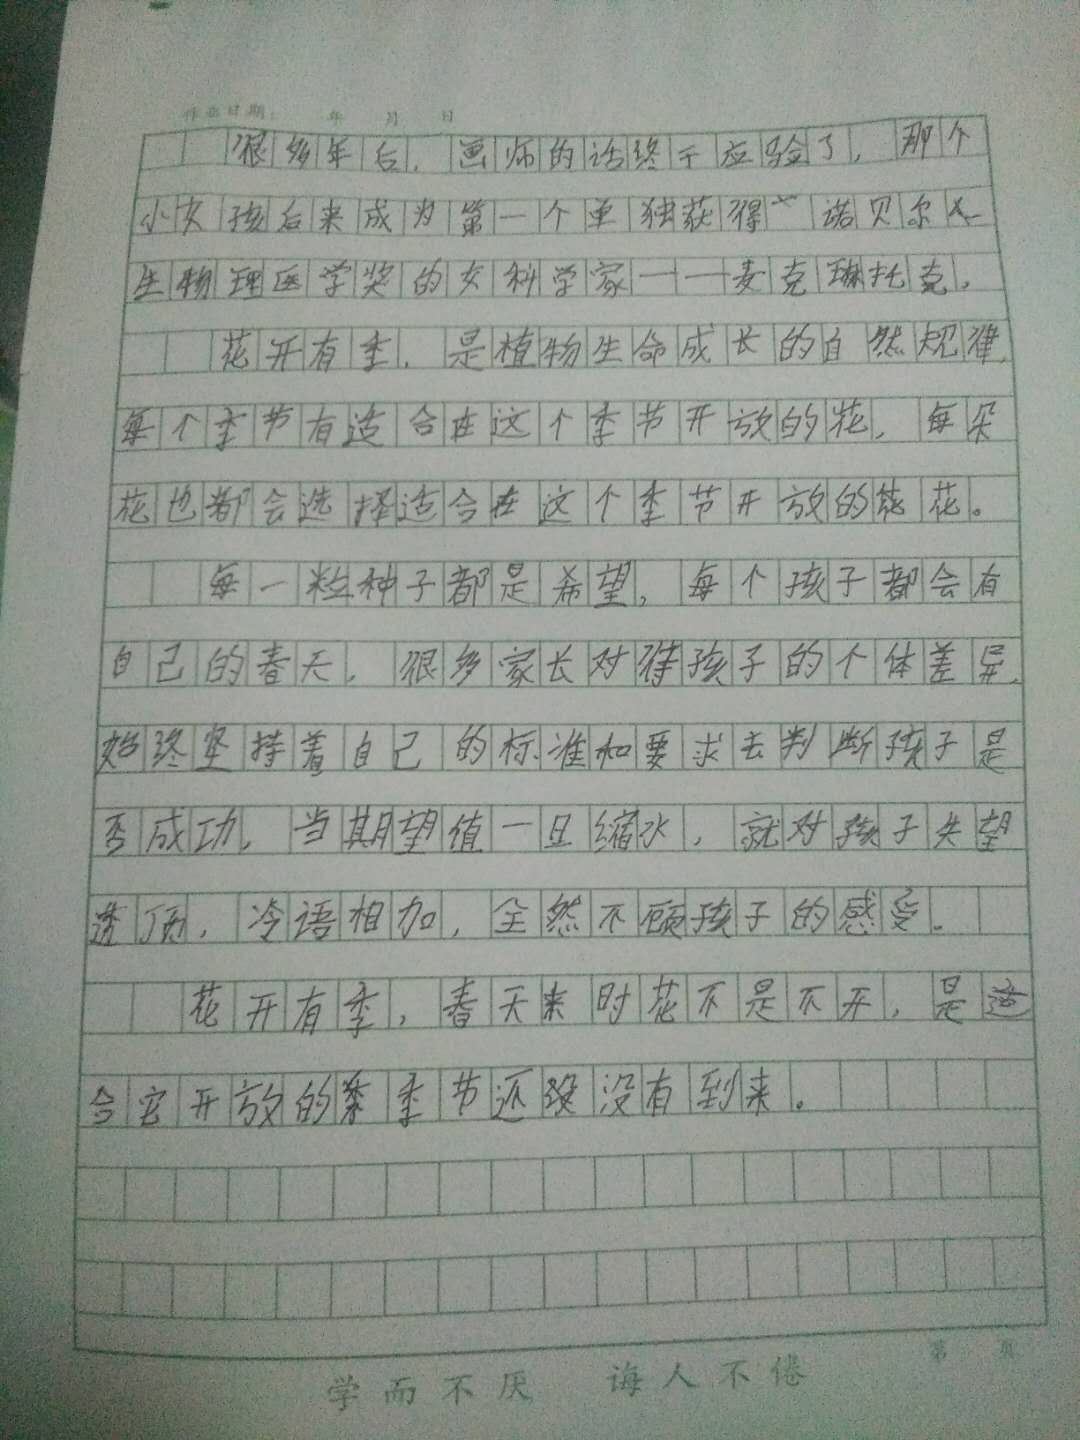 作业日期： 年 月 日
很多年后，画师的话终于应验了，那个
小女孩后来成为第一个单独获得诺贝尔
生物理医学奖的女科学家——麦克琳托克。
花开有季，是植物生命成长的自然规律，
每个季节有适合在这个季节开放的花，每朵
花也都会选择适合在这个季节开放的花。
每一粒种子都是希望，每个孩子都会有
自己的春天，很多家长对待孩子的个体差异，
始终坚持着自己的标准和要求去判断孩子是
否成功，当期望值一旦缩水，就对孩子失望
透顶，冷语相加，全然不顾孩子的感受。
花开有季，春天来时花不是不开，是适
合它开放的季节还没有到来。
第 页
学而不厌 诲人不倦